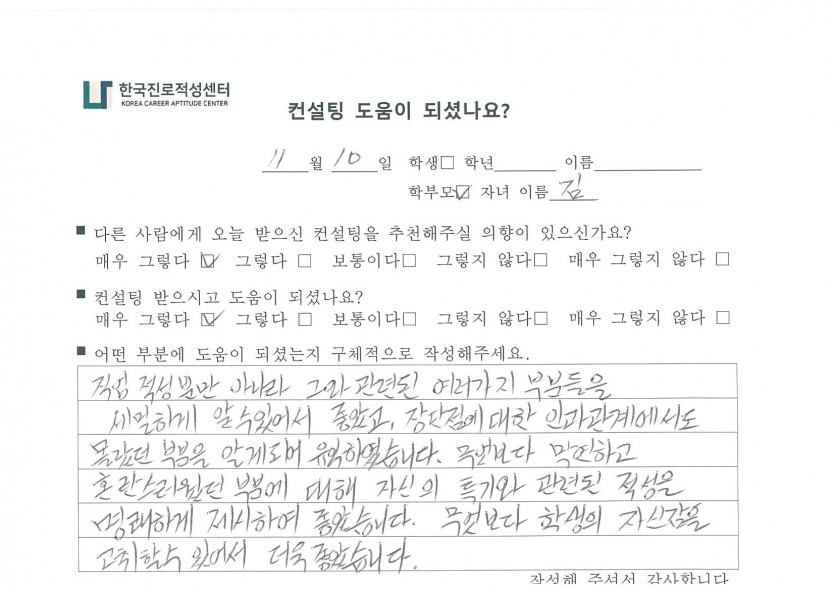 한국진로적성센터
KOREA CAREER APTITUDE CENTER
컨설팅 도움이 되셨나요?
11 월 10 일 학생□ 학년 이름
학부모☑ 자녀 이름 김
■ 다른 사람에게 오늘 받으신 컨설팅을 추천해주실 의향이 있으신가요?
매우 그렇다 ☑ 그렇다 □ 보통이다□ 그렇지 않다□ 매우 그렇지 않다 □
■ 컨설팅 받으시고 도움이 되셨나요?
매우 그렇다 ☑ 그렇다 □ 보통이다□ 그렇지 않다□ 매우 그렇지 않다 □
■ 어떤 부분에 도움이 되셨는지 구체적으로 작성해주세요.
직업 적성뿐만 아니라 그와 관련된 여러가지 부분들을
세밀하게 알 수있어서 좋았고, 장단점에 대한 인과관계에서도
몰랐던 부분을 알게되어 유익하였습니다. 무엇보다 막연하고
혼란스러웠던 부분에 대해 자신의 특기와 관련된 적성을
명쾌하게 제시하여 좋았습니다. 무엇보다 학생의 자신감을
고취할수 있어서 더욱 좋았습니다.
작성해 주셔서 감사합니다